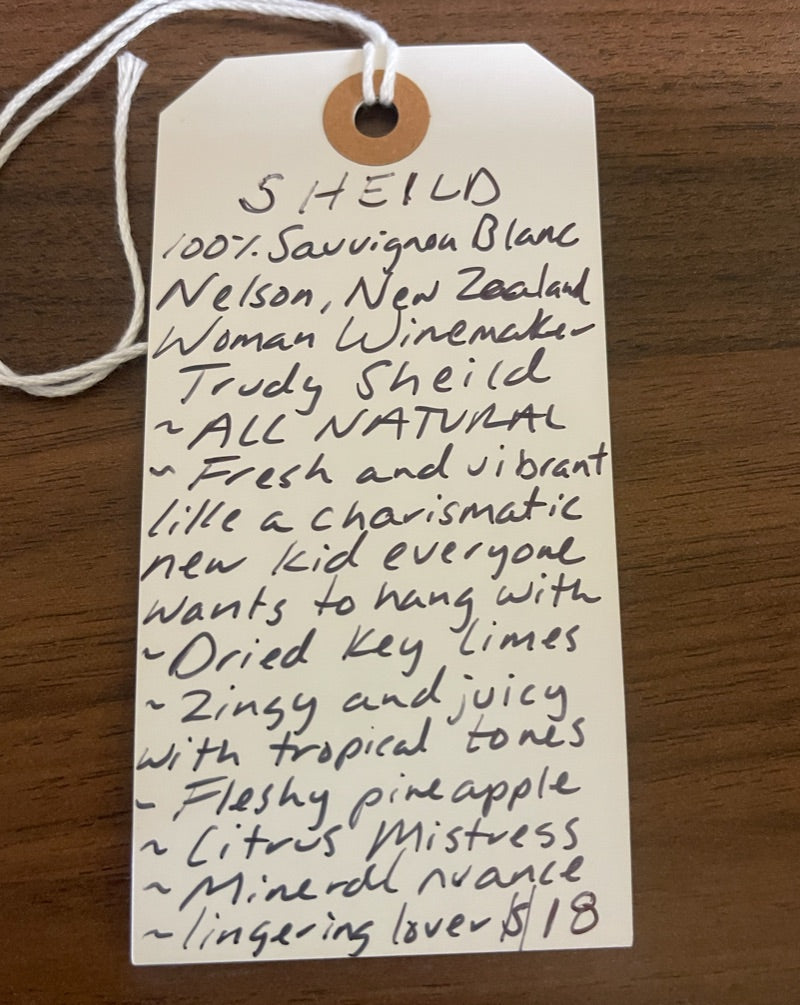 SHEILD
100% Sauvignon Blanc
Nelson, New Zealand
Woman Winemaker
Trudy Sheild
~ ALL NATURAL
~ Fresh and vibrant
like a charismatic
new kid everyone
wants to hang with
~ Dried Key limes
~ Zingy and juicy
with tropical tones
~ Fleshy pineapple
~ Citrus Mistress
~ Mineral nuance
~ lingering lover $18